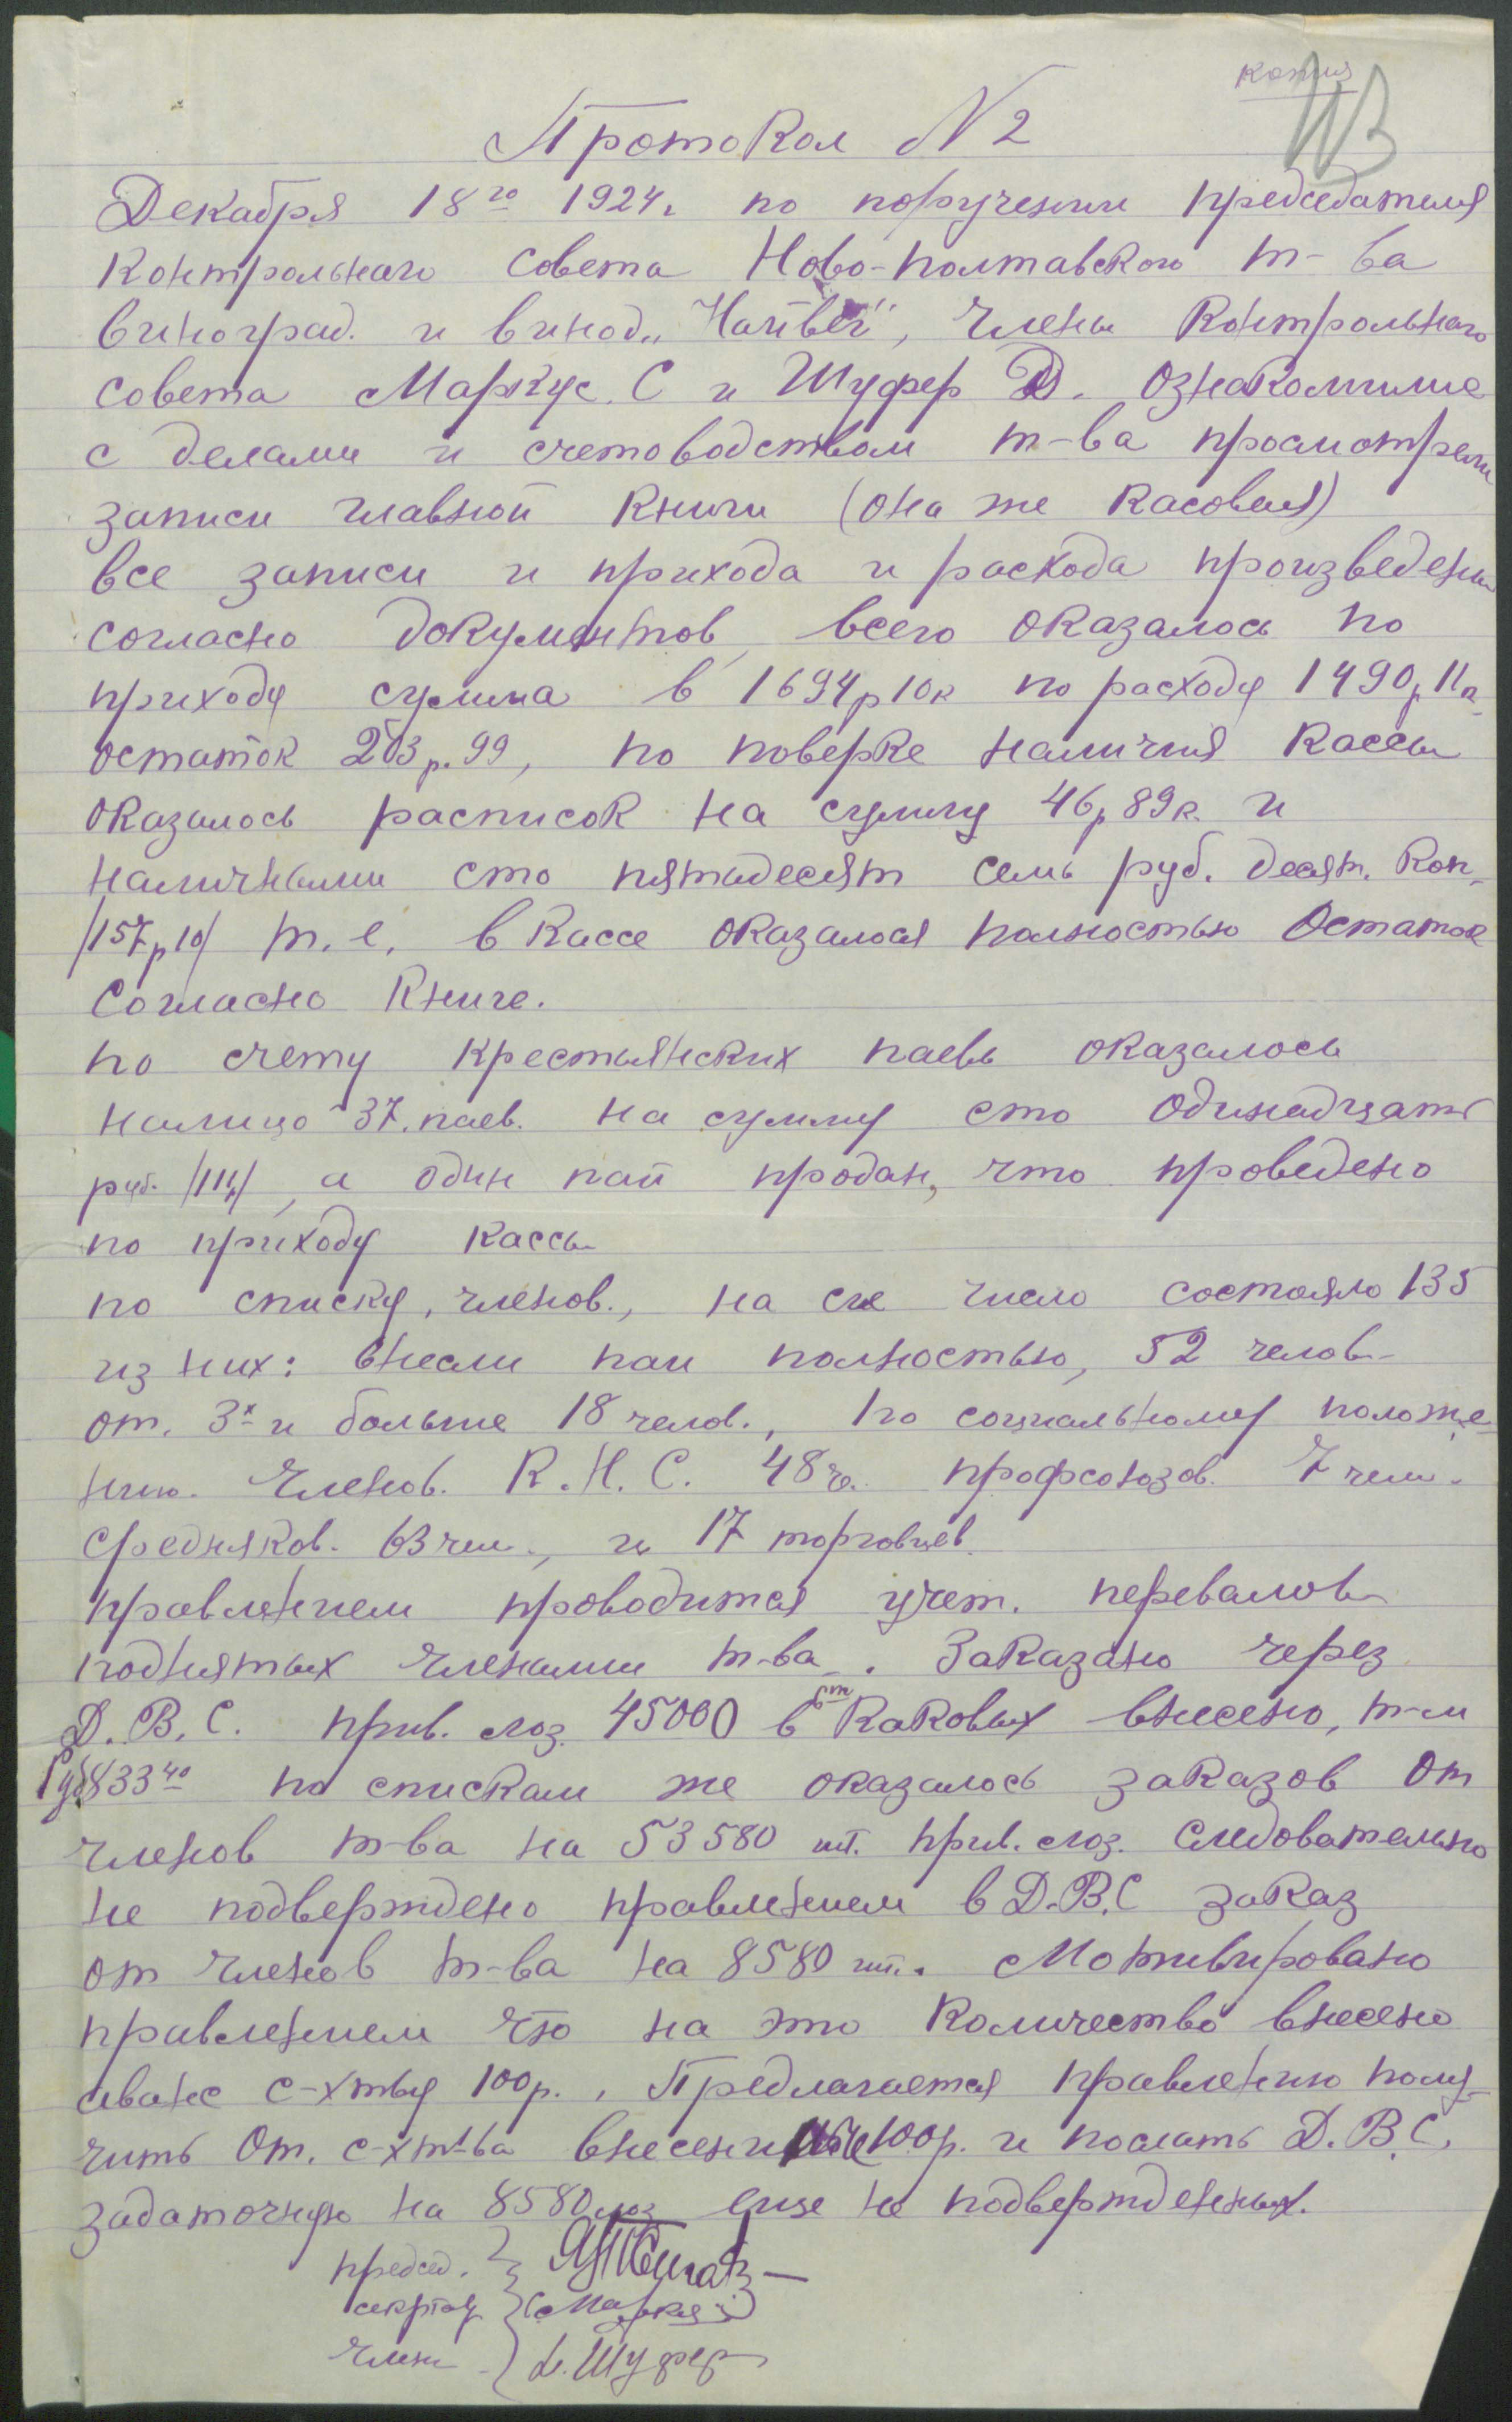 копия
Протокол N 2
Декабря 18го 1924г по поручении председателя
контрольнаго совета Ново-полтавского т-ва
виноград. и винод.,, члены контрольнаго
совета Маркус. С и Шуфер Д. ознакомившие
с делами и счетоводством т-ва просмотрели
записи главной книги (она же касовая)
все записи и прихода и расхода произведены
согласно документов, всего оказалось по
приходу сумма в 1694р 10к по расходу 1490р 11к,
остаток 203р. 99, по поверке наличия кассы
оказалось расписок на сумму 46р 89к. и
наличными сто пятьдесят семь руб. десят. коп.
/157р 10/ т. е. в кассе оказалося полностью остаток
согласно книге.
по счету крестьянских паевь оказалось
налицо 37. паев. на сумму сто одинадцать
руб. /111р/, а один пай продан, что проведено
по приходу кассы
по списку, членов., на сие число состояло 135
из них: внесли паи полностью, 52 челов.
от. 3х и больше 18 челов., по социальному положе-
нию. Членов. К.Н.С. 48 ч. профсоюзов. 7 чел.
средняков. 63 чел., и 17 торговцев.
правлением проводится учет. перевалов
поднятых членами т-ва. Заказано через
Д. В. С. прив. лоз. 45000 шт в каковых внесено, т-м
Руб 833 40 по спискам же оказалось заказов от
членов т-ва на 53580 шт. прив. лоз. следовательно
не подверждено правлением в Д.В.С заказ
от членов т-ва на 8580 шт. Мотивировано
правлением что на это количество внесено
аванс с-хтву 100р., Предлагается правлению полу-
чить от. с-хт-ва внесенные 100р. и послать Д. В. С.
задаточную на 8580 лоз еще не подвержденных.
председ. }
секртарь } С Маркус
члены } Д. Шуфер